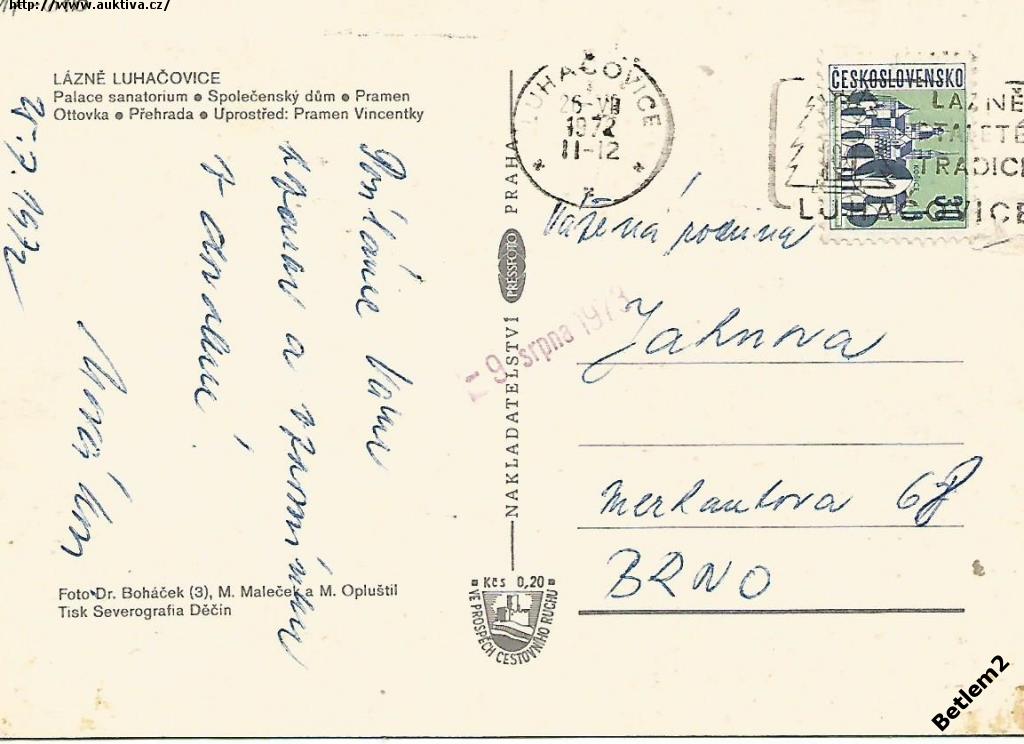 http://www.auktiva.cz/
LÁZNĚ LUHAČOVICE
Palace sanatorium ● Společenský dům ● Pramen
Ottovka ● Přehrada ● Uprostřed: Pramen Vincentky
25. 7. 1972
Posíláme Vám
a vzpomínku
Foto Dr. Boháček (3), M. Maleček a M. Opluštil
Tisk Severografia Děčín
NAKLADATELSTVÍ PRESSFOTO PRAHA
9. srpna 1973
Kčs 0,20
VE PROSPĚCH CESTOVNÍHO RUCHU
LUHAČOVICE
26-VII
1972
11-12
ČESKOSLOVENSKO
LÁZNĚ
STALETÉ
TRADICE
LUHAČOVICE
Vážená rodina
Jahnova
Merhautova 68
BRNO
Betlem2